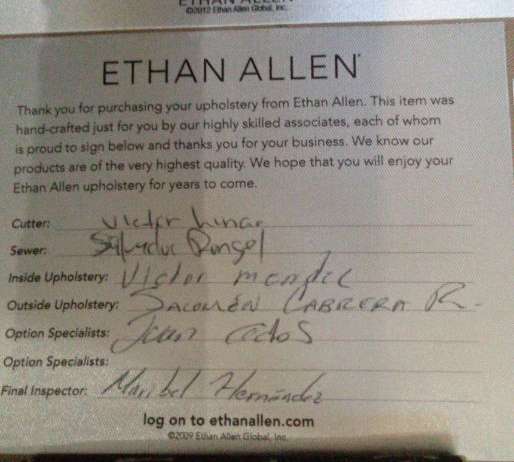 ETHAN ALLEN
©2012 Ethan Allen Global, Inc.
ETHAN ALLEN
Thank you for purchasing your upholstery from Ethan Allen. This item was
hand-crafted just for you by our highly skilled associates, each of whom
is proud to sign below and thanks you for your business. We know our
products are of the very highest quality. We hope that you will enjoy your
Ethan Allen upholstery for years to come.
Cutter: Victor
Sewer: Rangel
Inside Upholstery: Victor
Outside Upholstery: CABRERA R.
Option Specialists: Juan
Option Specialists:
Final Inspector: Maribel Hernández
log on to ethanallen.com
©2009 Ethan Allen Global, Inc.